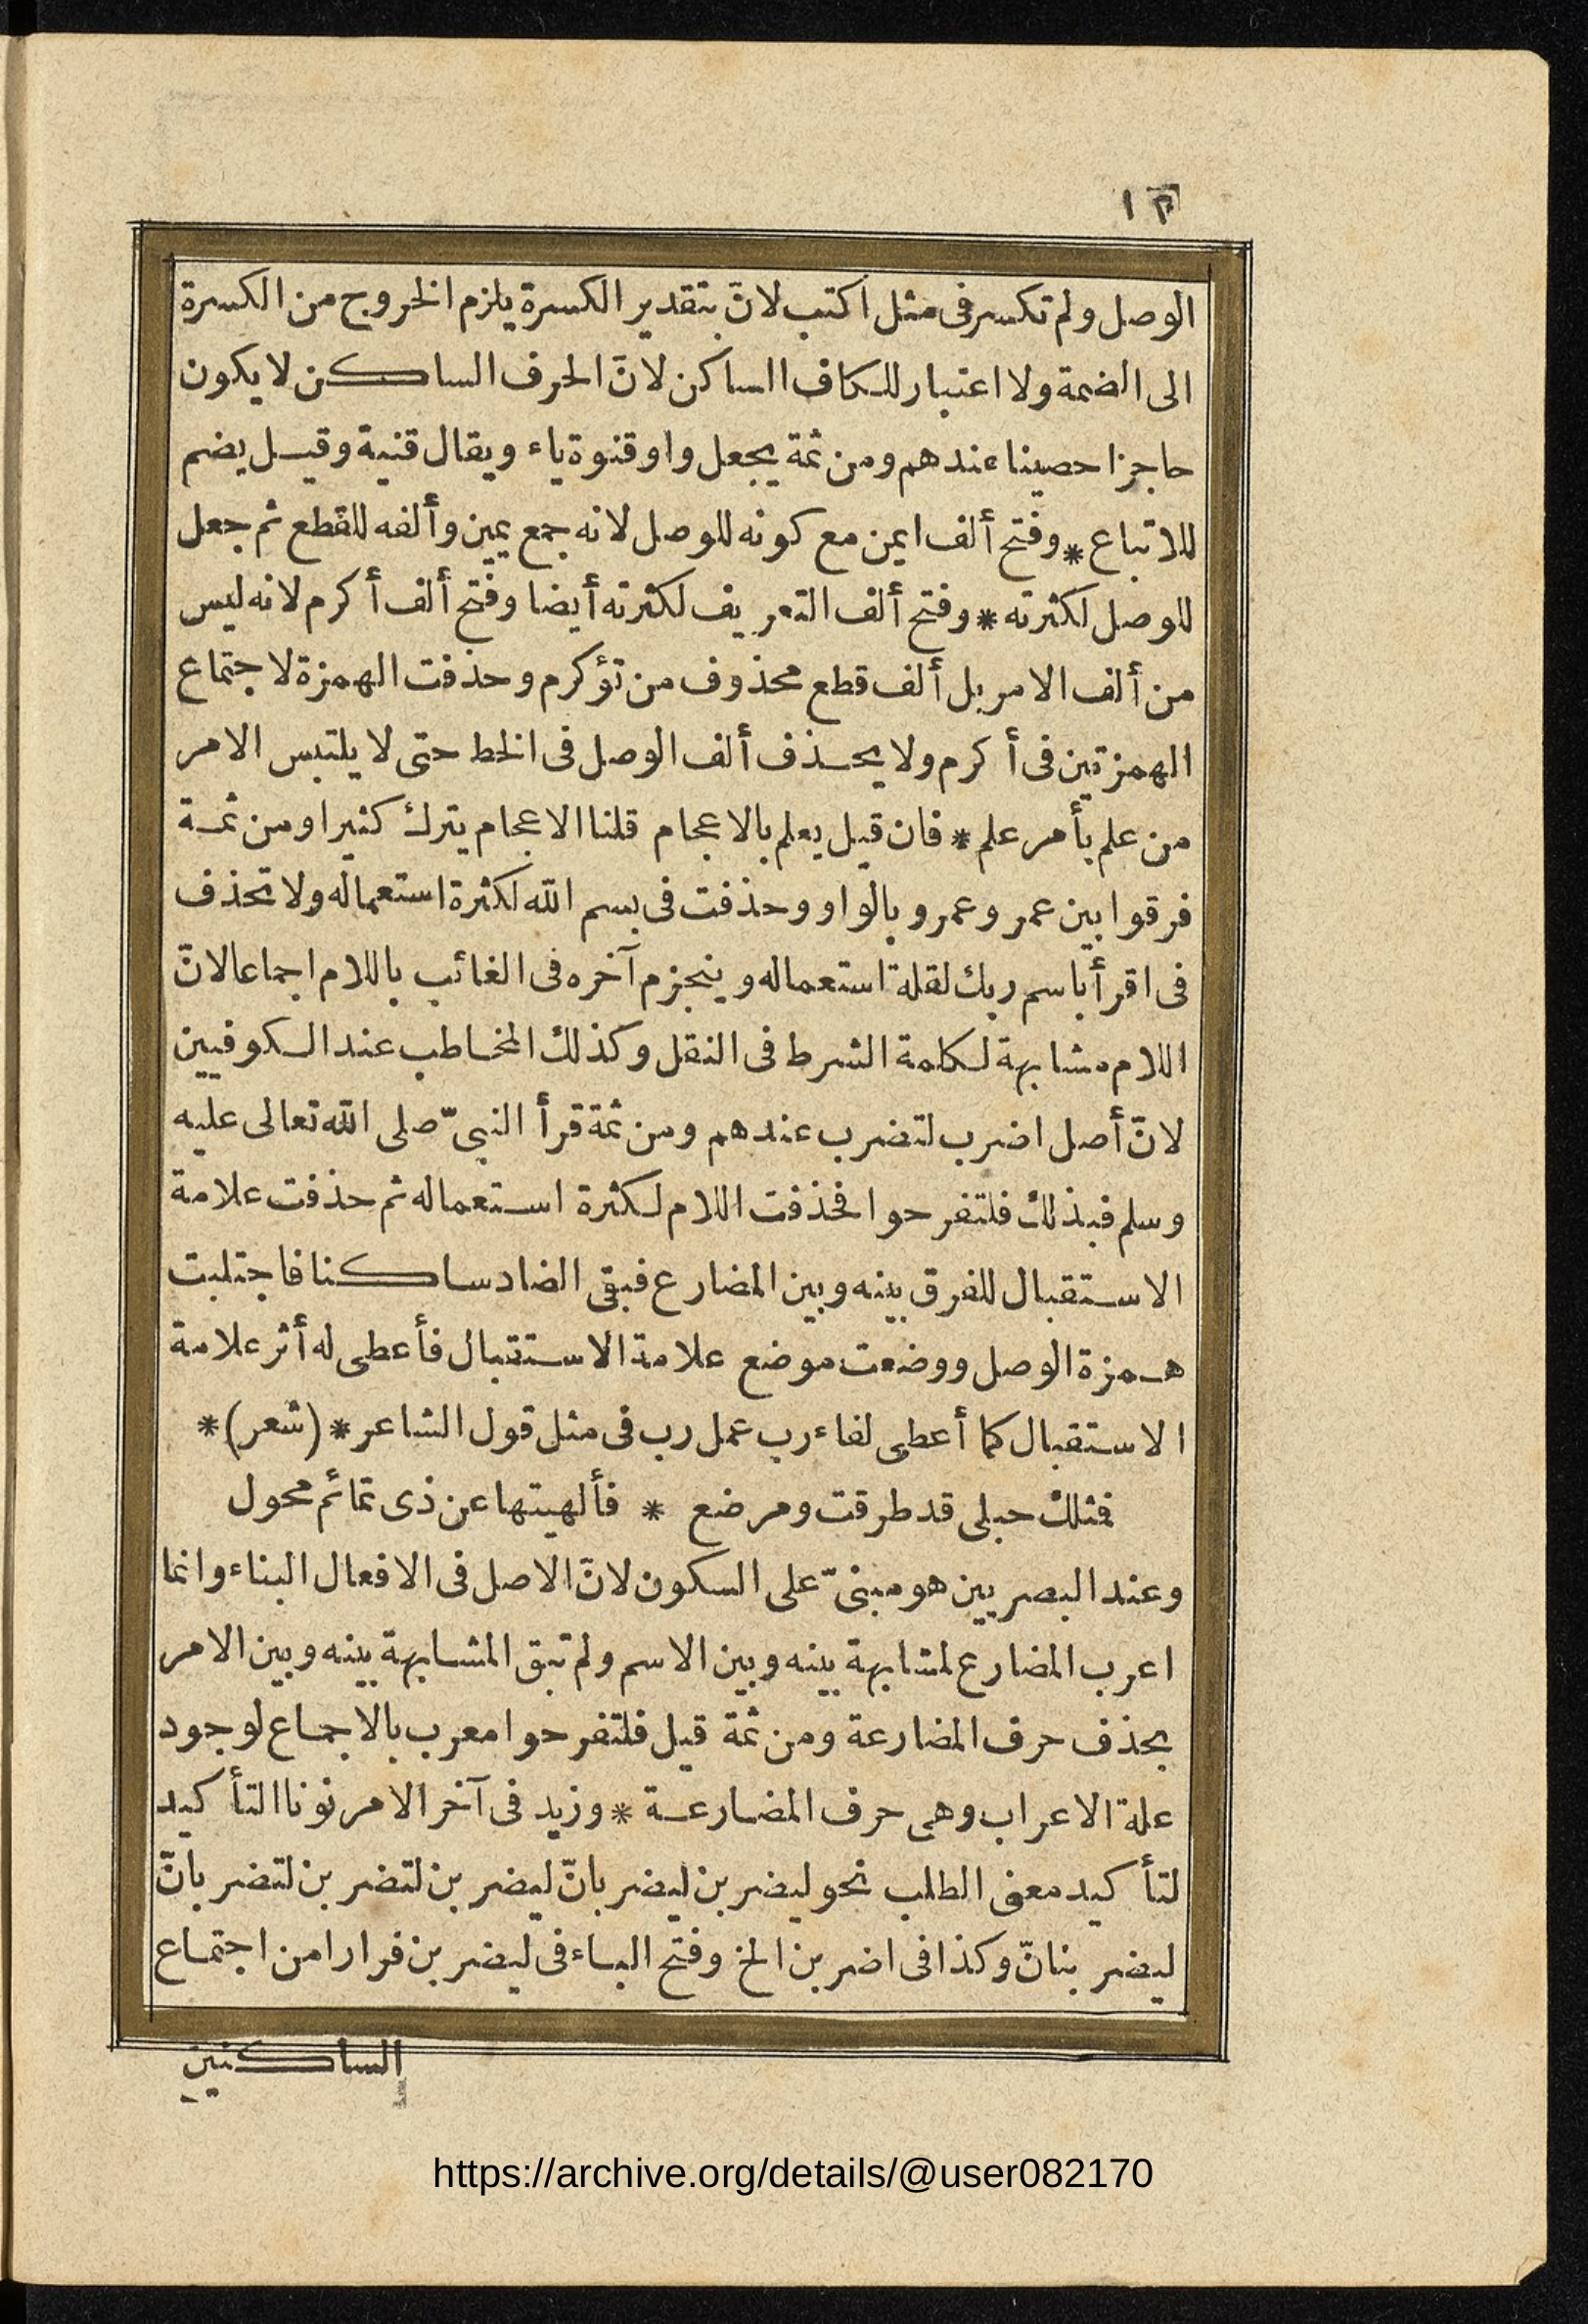 ١٣
الوصل ولم تكسر فى مثل اكتب لانّ بتقدير الكسرة يلزم الخروج من الكسرة
الى الضمة ولا اعتبار للكاف الساكن لانّ الحرف الساكن لا يكون
حاجزا حصينا عندهم ومن ثمة يجعل واو قنوة ياء ويقال قنية وقيل يضم
للاتباع * وفتح ألف ايمن مع كونه للوصل لانه جمع يمين وألفه للقطع ثم جعل
للوصل لكثرته * وفتح ألف التعريف لكثرته أيضا وفتح ألف أكرم لانه ليس
من ألف الامر بل ألف قطع محذوف من تؤكرم وحذفت الهمزة لاجتماع
الهمزتين فى أكرم ولا يحذف ألف الوصل فى الخط حتى لا يلتبس الامر
من علم بأمر علم * فان قيل يعلم بالاعجام قلنا الاعجام يترك كثيرا ومن ثمة
فرقوا بين عمر وعمرو بالواو وحذفت فى بسم الله لكثرة استعماله ولا تحذف
فى اقرأ باسم ربك لقلة استعماله وينجزم آخره فى الغائب باللام اجماعا لانّ
اللام مشابهة لكلمة الشرط فى النقل وكذلك المخاطب عند الكوفيين
لانّ أصل اضرب لتضرب عندهم ومن ثمة قرأ النبىّ صلى الله تعالى عليه
وسلم فبذلك فلتفرحوا فحذفت اللام لكثرة استعماله ثم حذفت علامة
الاستقبال للفرق بينه وبين المضارع فبقى الضاد ساكنا فاجتلبت
همزة الوصل ووضعت موضع علامة الاستقبال فأعطى له أثر علامة
الاستقبال كما أعطى لفاء رب عمل رب فى مثل قول الشاعر * (شعر) *
فمثلك حبلى قد طرقت ومرضع * فألهيتها عن ذى تمائم محول
وعند البصريين هو مبنىّ على السكون لانّ الاصل فى الافعال البناء وانما
اعرب المضارع لمشابهة بينه وبين الاسم ولم تبق المشابهة بينه وبين الامر
بحذف حرف المضارعة ومن ثمة قيل فلتفرحوا معرب بالاجماع لوجود
علة الاعراب وهى حرف المضارعة * وزيد فى آخر الامر نونا التأكيد
لتأكيد معنى الطلب نحو ليضربن ليضربانّ ليضربن لتضربن لتضربانّ
ليضربنانّ وكذا فى اضربن الخ وفتح الباء فى ليضربن فرارا من اجتماع
الساكنين
https://archive.org/details/@user082170